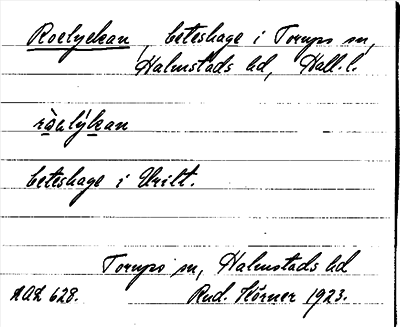 Roelyckan, beteshage i Torups sn,
Halmstads hd, Hall. l.
beteshage i Vrilt.
Torups sn, Halmstads hd
AAL 628. Rud. Hörner 1923.